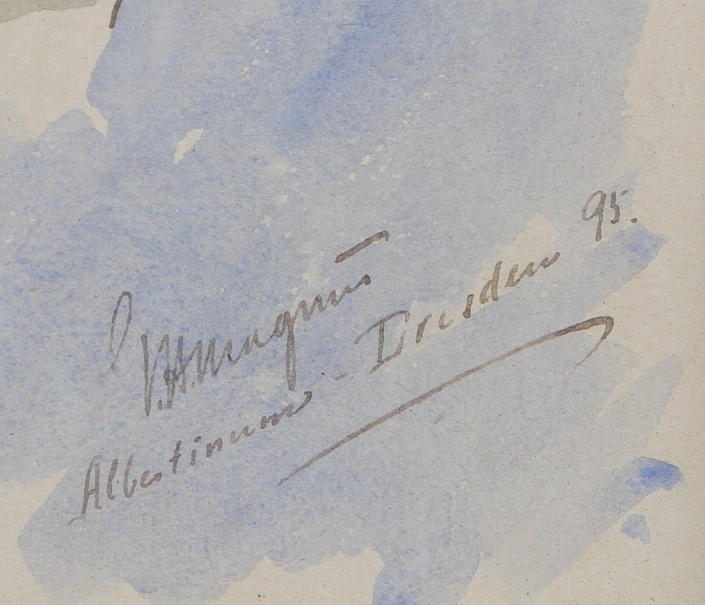 Magnus
Albertinum - Dresden 95.